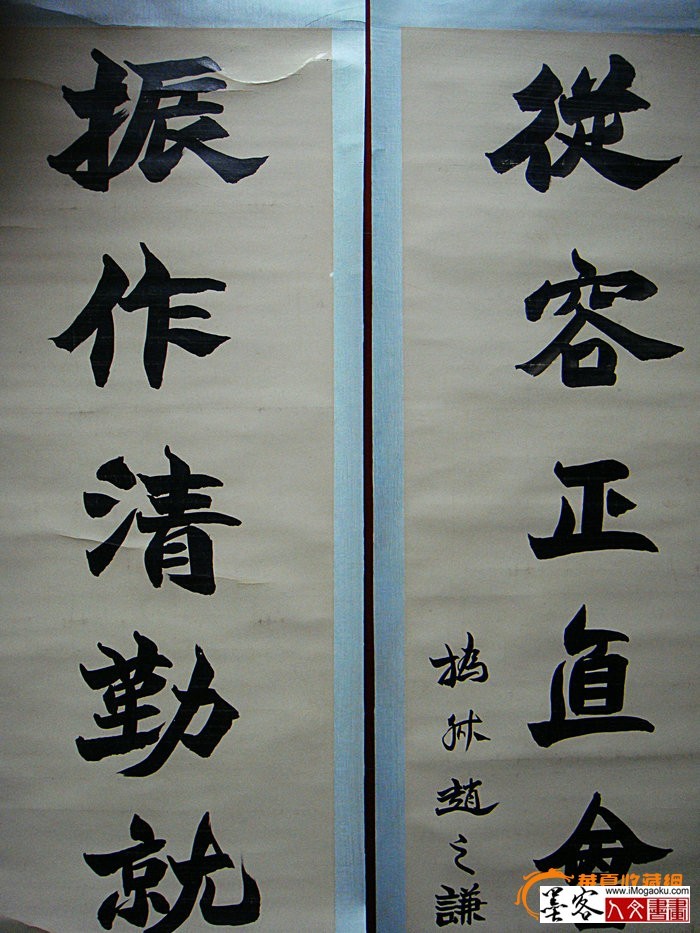 從容正直
撝叔趙之謙
振作清勤就
華夏收藏網
www.iMogaoku.com
墨客人文書畫